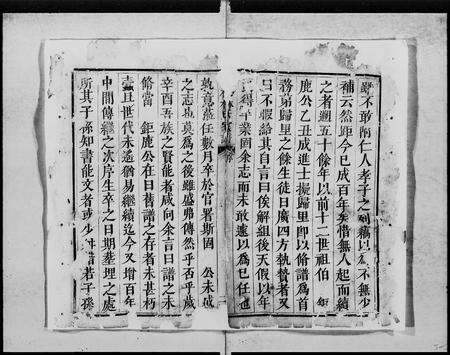 不敢附仁人孝子之列稿以為不無少
補云然距今已成百年矣惜無人起而續
之者迴五十餘年以前十二世祖伯鉅
鹿公乙丑成進士擬歸里即以脩譜為首
務第歸里之餘生徒日廣四方執贄者又
日不暇給其自言曰俟解組後天假以年
得卒業固余志而未敢遽以為已任也
孰意蒞任數月卒於官署斯固公未成
之志也莫為之後雖盛弗傳然乎否乎歲
辛酉吾族之賢能者咸向余言曰譜之未
脩當鉅鹿公在日舊譜之存者未甚朽
蠹且世代未遙猶易繼續迄今又增百年
中間傳繼之次序生卒之日期塟埋之處
所其子孫知書能文者或少若子孫